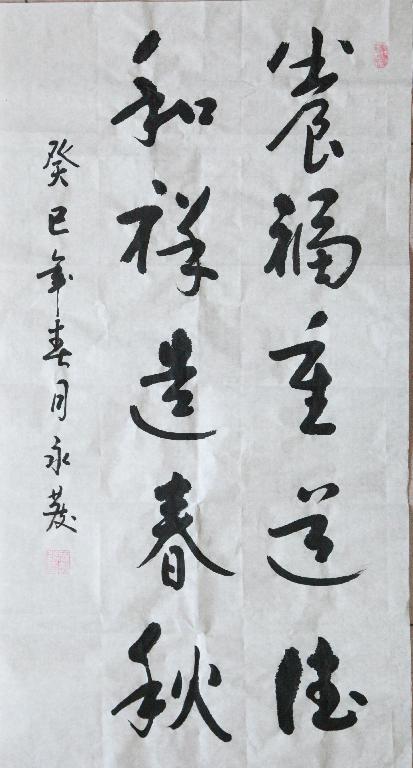 养福重道德
和祥造春秋
癸巳年春月永茂